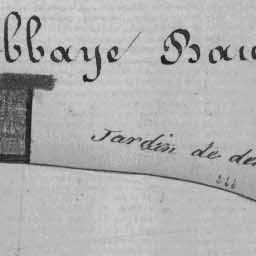 bbaye Bau
Jardin de de